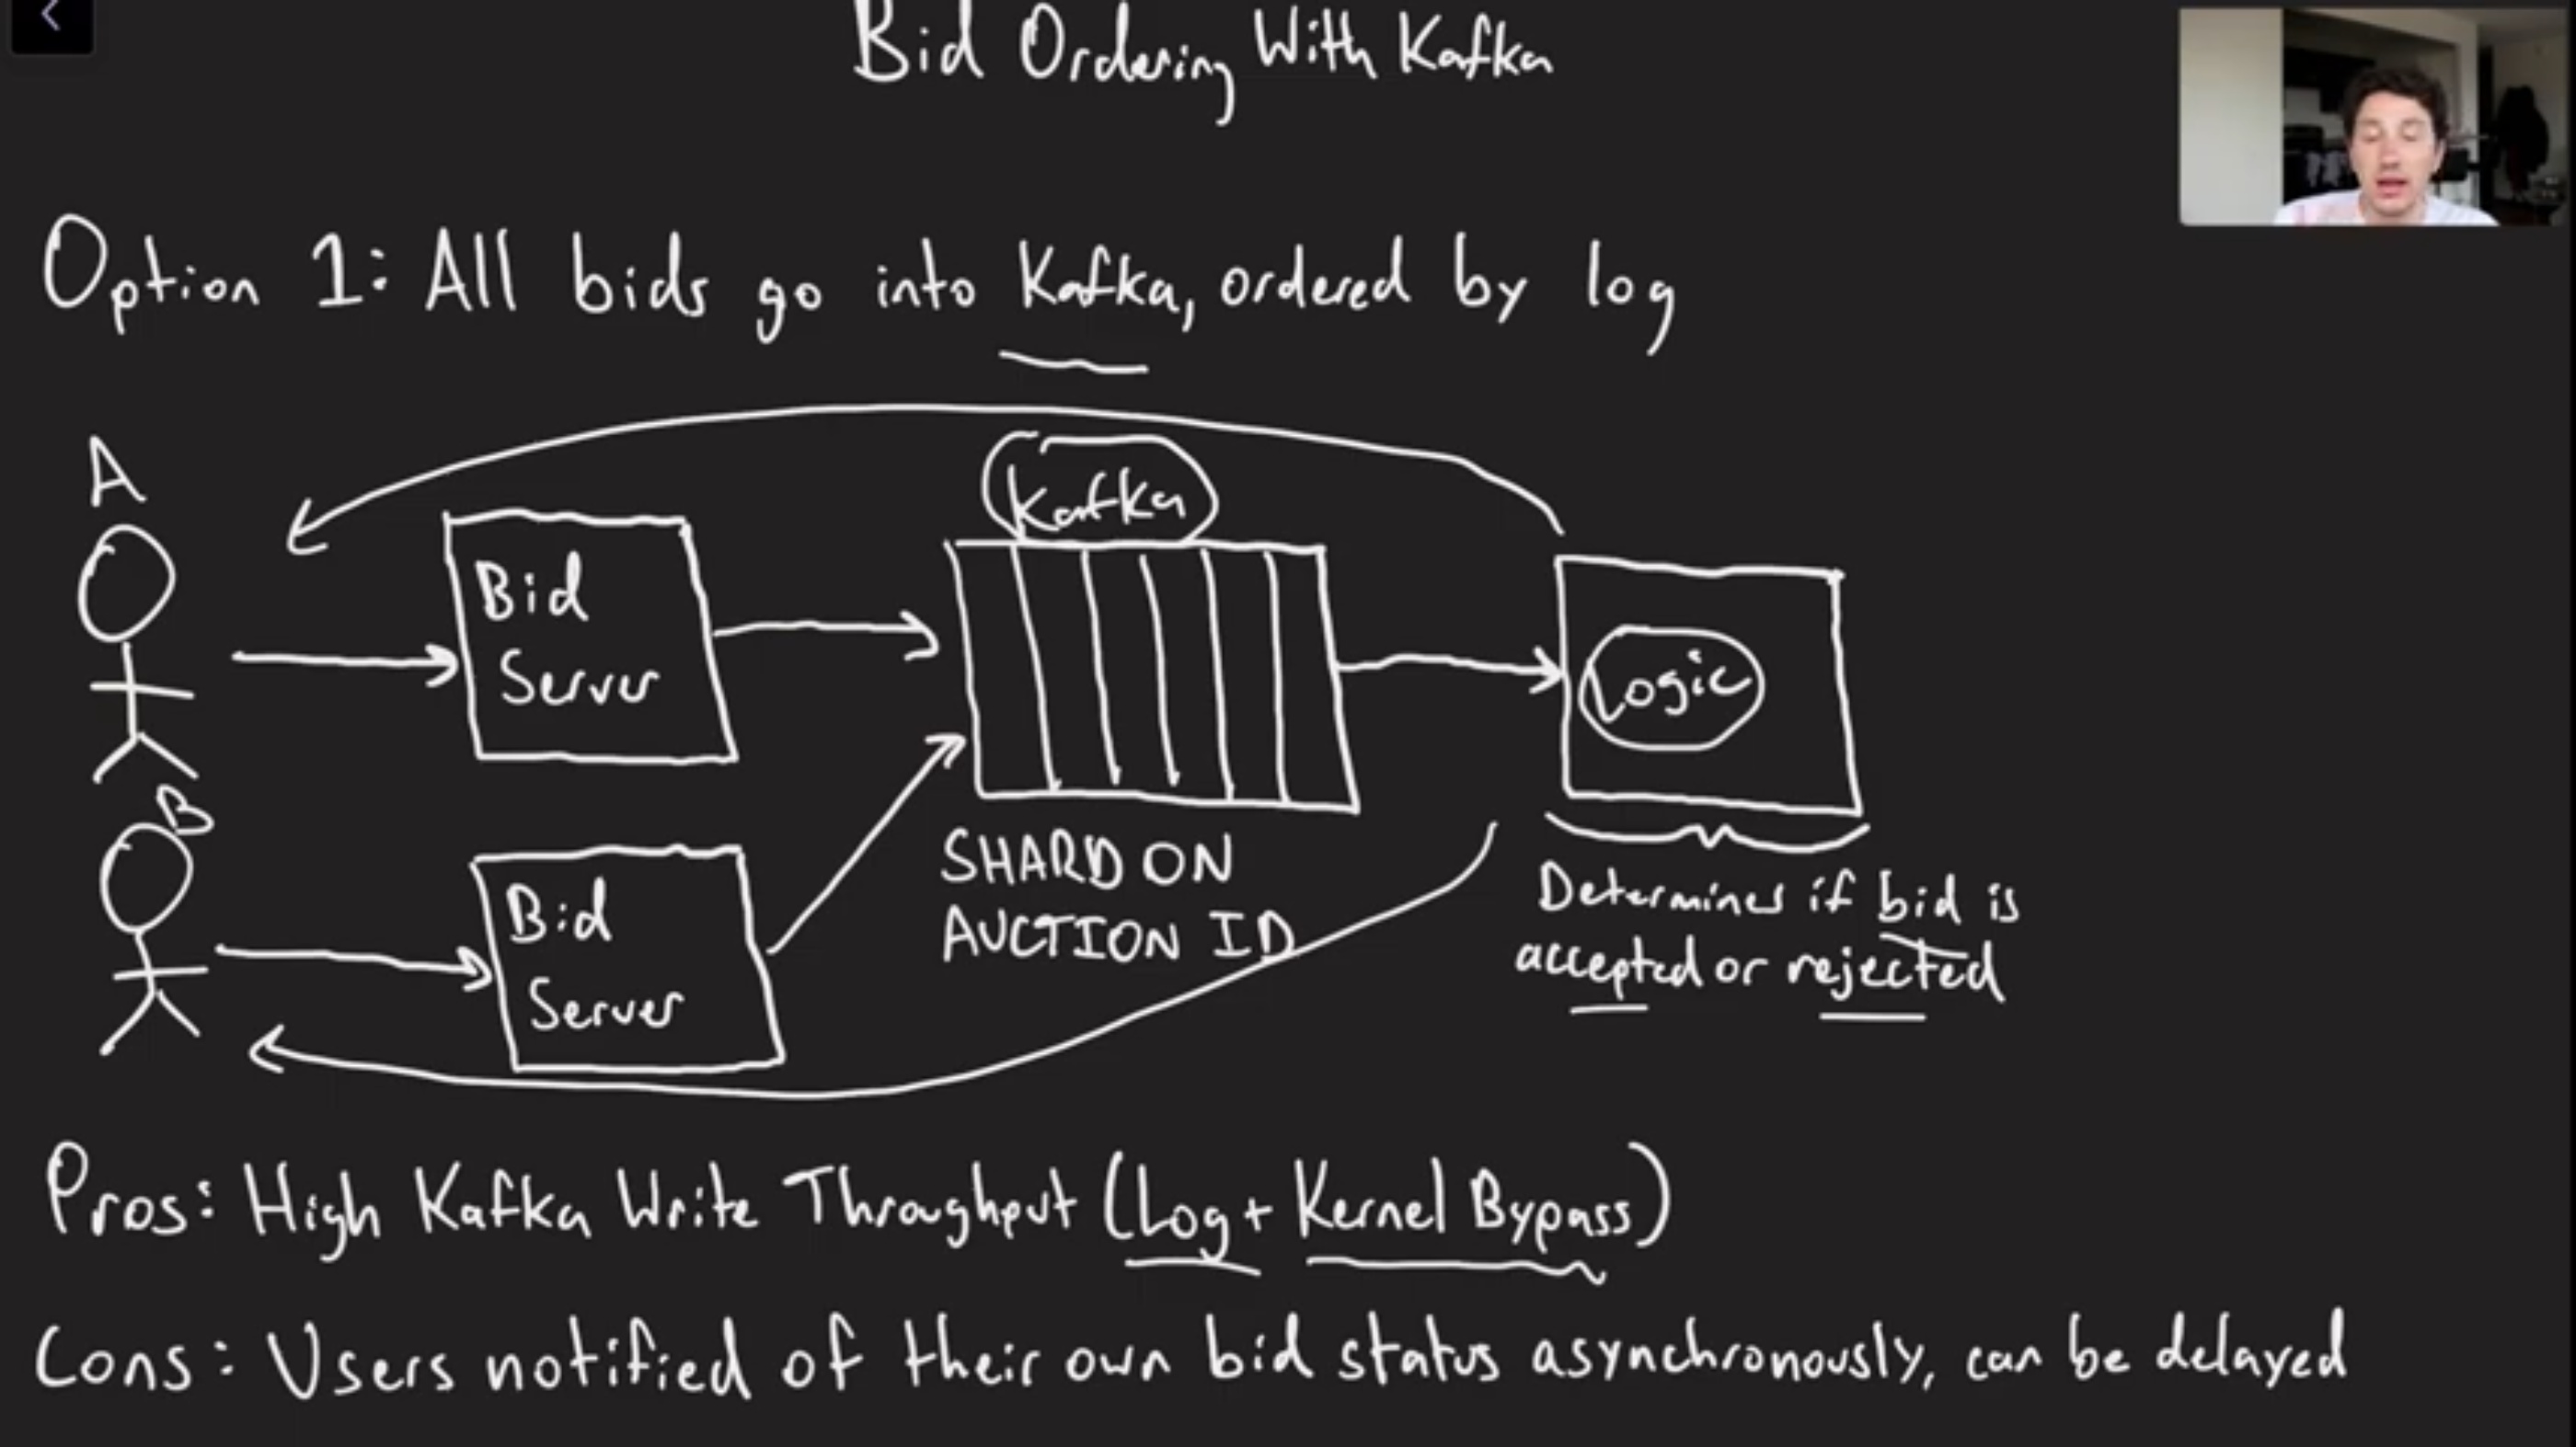 Bid Ordering With Kafka
Option 1: All bids go into Kafka, ordered by log
A
Kafka
Bid
Server
Logic
B
Bid
Server
SHARD ON
AUCTION ID
Determines if bid is
accepted or rejected
Pros: High Kafka Write Throughput (Log + Kernel Bypass)
Cons: Users notified of their own bid status asynchronously, can be delayed